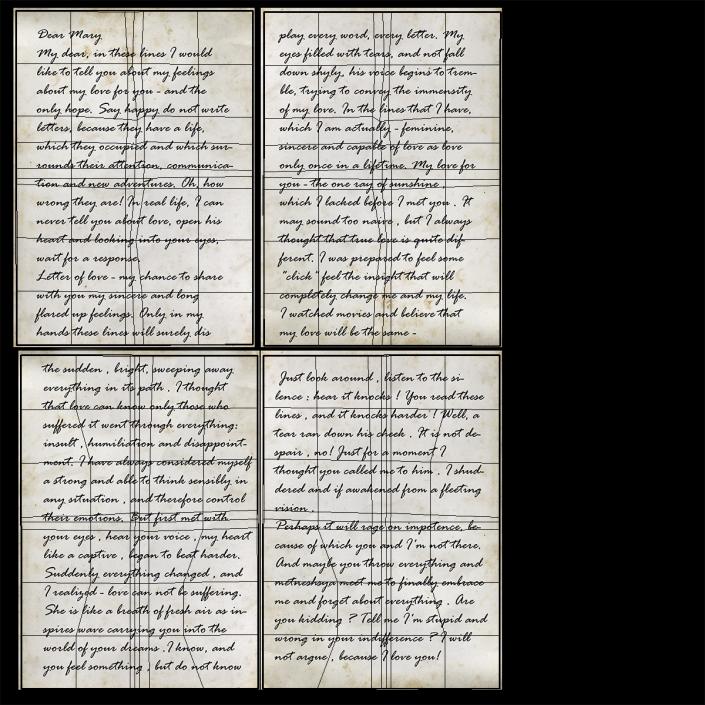 Dear Mary
My dear, in these lines I would
like to tell you about my feelings
about my love for you - and the
only hope. Say happy do not write
letters, because they have a life,
which they occupied and which sur-
rounds their attention, communica-
tion and new adventures. Oh, how
wrong they are! In real life, I can
never tell you about love, open his
heart and looking into your eyes,
wait for a response.
Letter of love - my chance to share
with you my sincere and long
flared up feelings. Only in my
hands these lines will surely dis
play every word, every letter. My
eyes filled with tears, and not fall
down shyly, his voice begins to trem-
ble, trying to convey the immensity
of my love. In the lines that I have,
which I am actually - feminine,
sincere and capable of love as love
only once in a lifetime. My love for
you - the one ray of sunshine ,
which I lacked before I met you . It
may sound too naive , but I always
thought that true love is quite dif-
ferent. I was prepared to feel some
"click " feel the insight that will
completely change me and my life.
I watched movies and believe that
my love will be the same -
the sudden , bright, sweeping away
everything in its path . I thought
that love can know only those who
suffered it went through everything:
insult , humiliation and disappoint-
ment. I have always considered myself
a strong and able to think sensibly in
any situation , and therefore control
their emotions. But first met with
your eyes , hear your voice , my heart
like a captive , began to beat harder.
Suddenly everything changed , and
I realized - love can not be suffering.
She is like a breath of fresh air as in-
spires wave carrying you into the
world of your dreams . I know, and
you feel something , but do not know
Just look around , listen to the si-
lence : hear it knocks ! You read these
lines , and it knocks harder ! Well, a
tear ran down his cheek . It is not de-
spair , no! Just for a moment I
thought you called me to him . I shud-
dered and if awakened from a fleeting
vision .
Perhaps it will rage on impotence, be-
cause of which you and I'm not there.
And maybe you throw everything and
metneshsya meet me to finally embrace
me and forget about everything . Are
you kidding ? Tell me I'm stupid and
wrong in your indifference ? I will
not argue , because I love you!